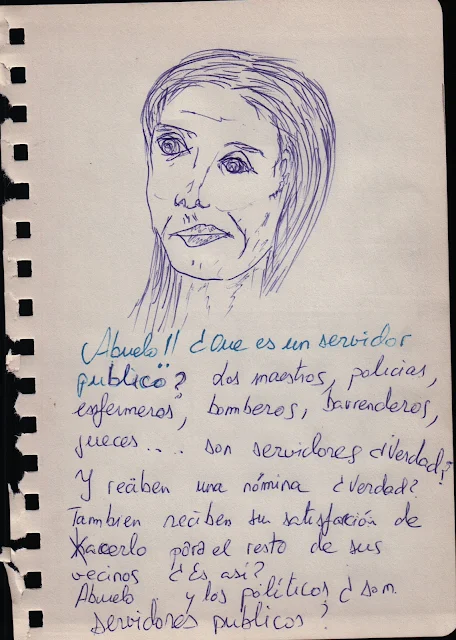 ¡Abuelo!! ¿Que es un servidor
publico"? Los maestros, policias,
enfermeros, bomberos, barrenderos,
jueces.... son servidores ¿Verdad?
Y reciben una nómina ¿Verdad?
Tambien reciben su satisfacción de
hacerlo para el resto de sus
vecinos ¿Es así?
Abuelo.. y los políticos ¿son
servidores publicos?